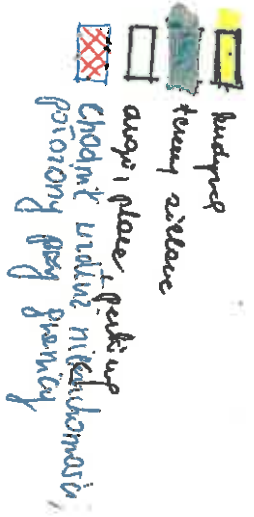 budynek
tereny zielone
drogi, place, parkingi
chodnik wzdłuż nieruchomości
położony przy granicy